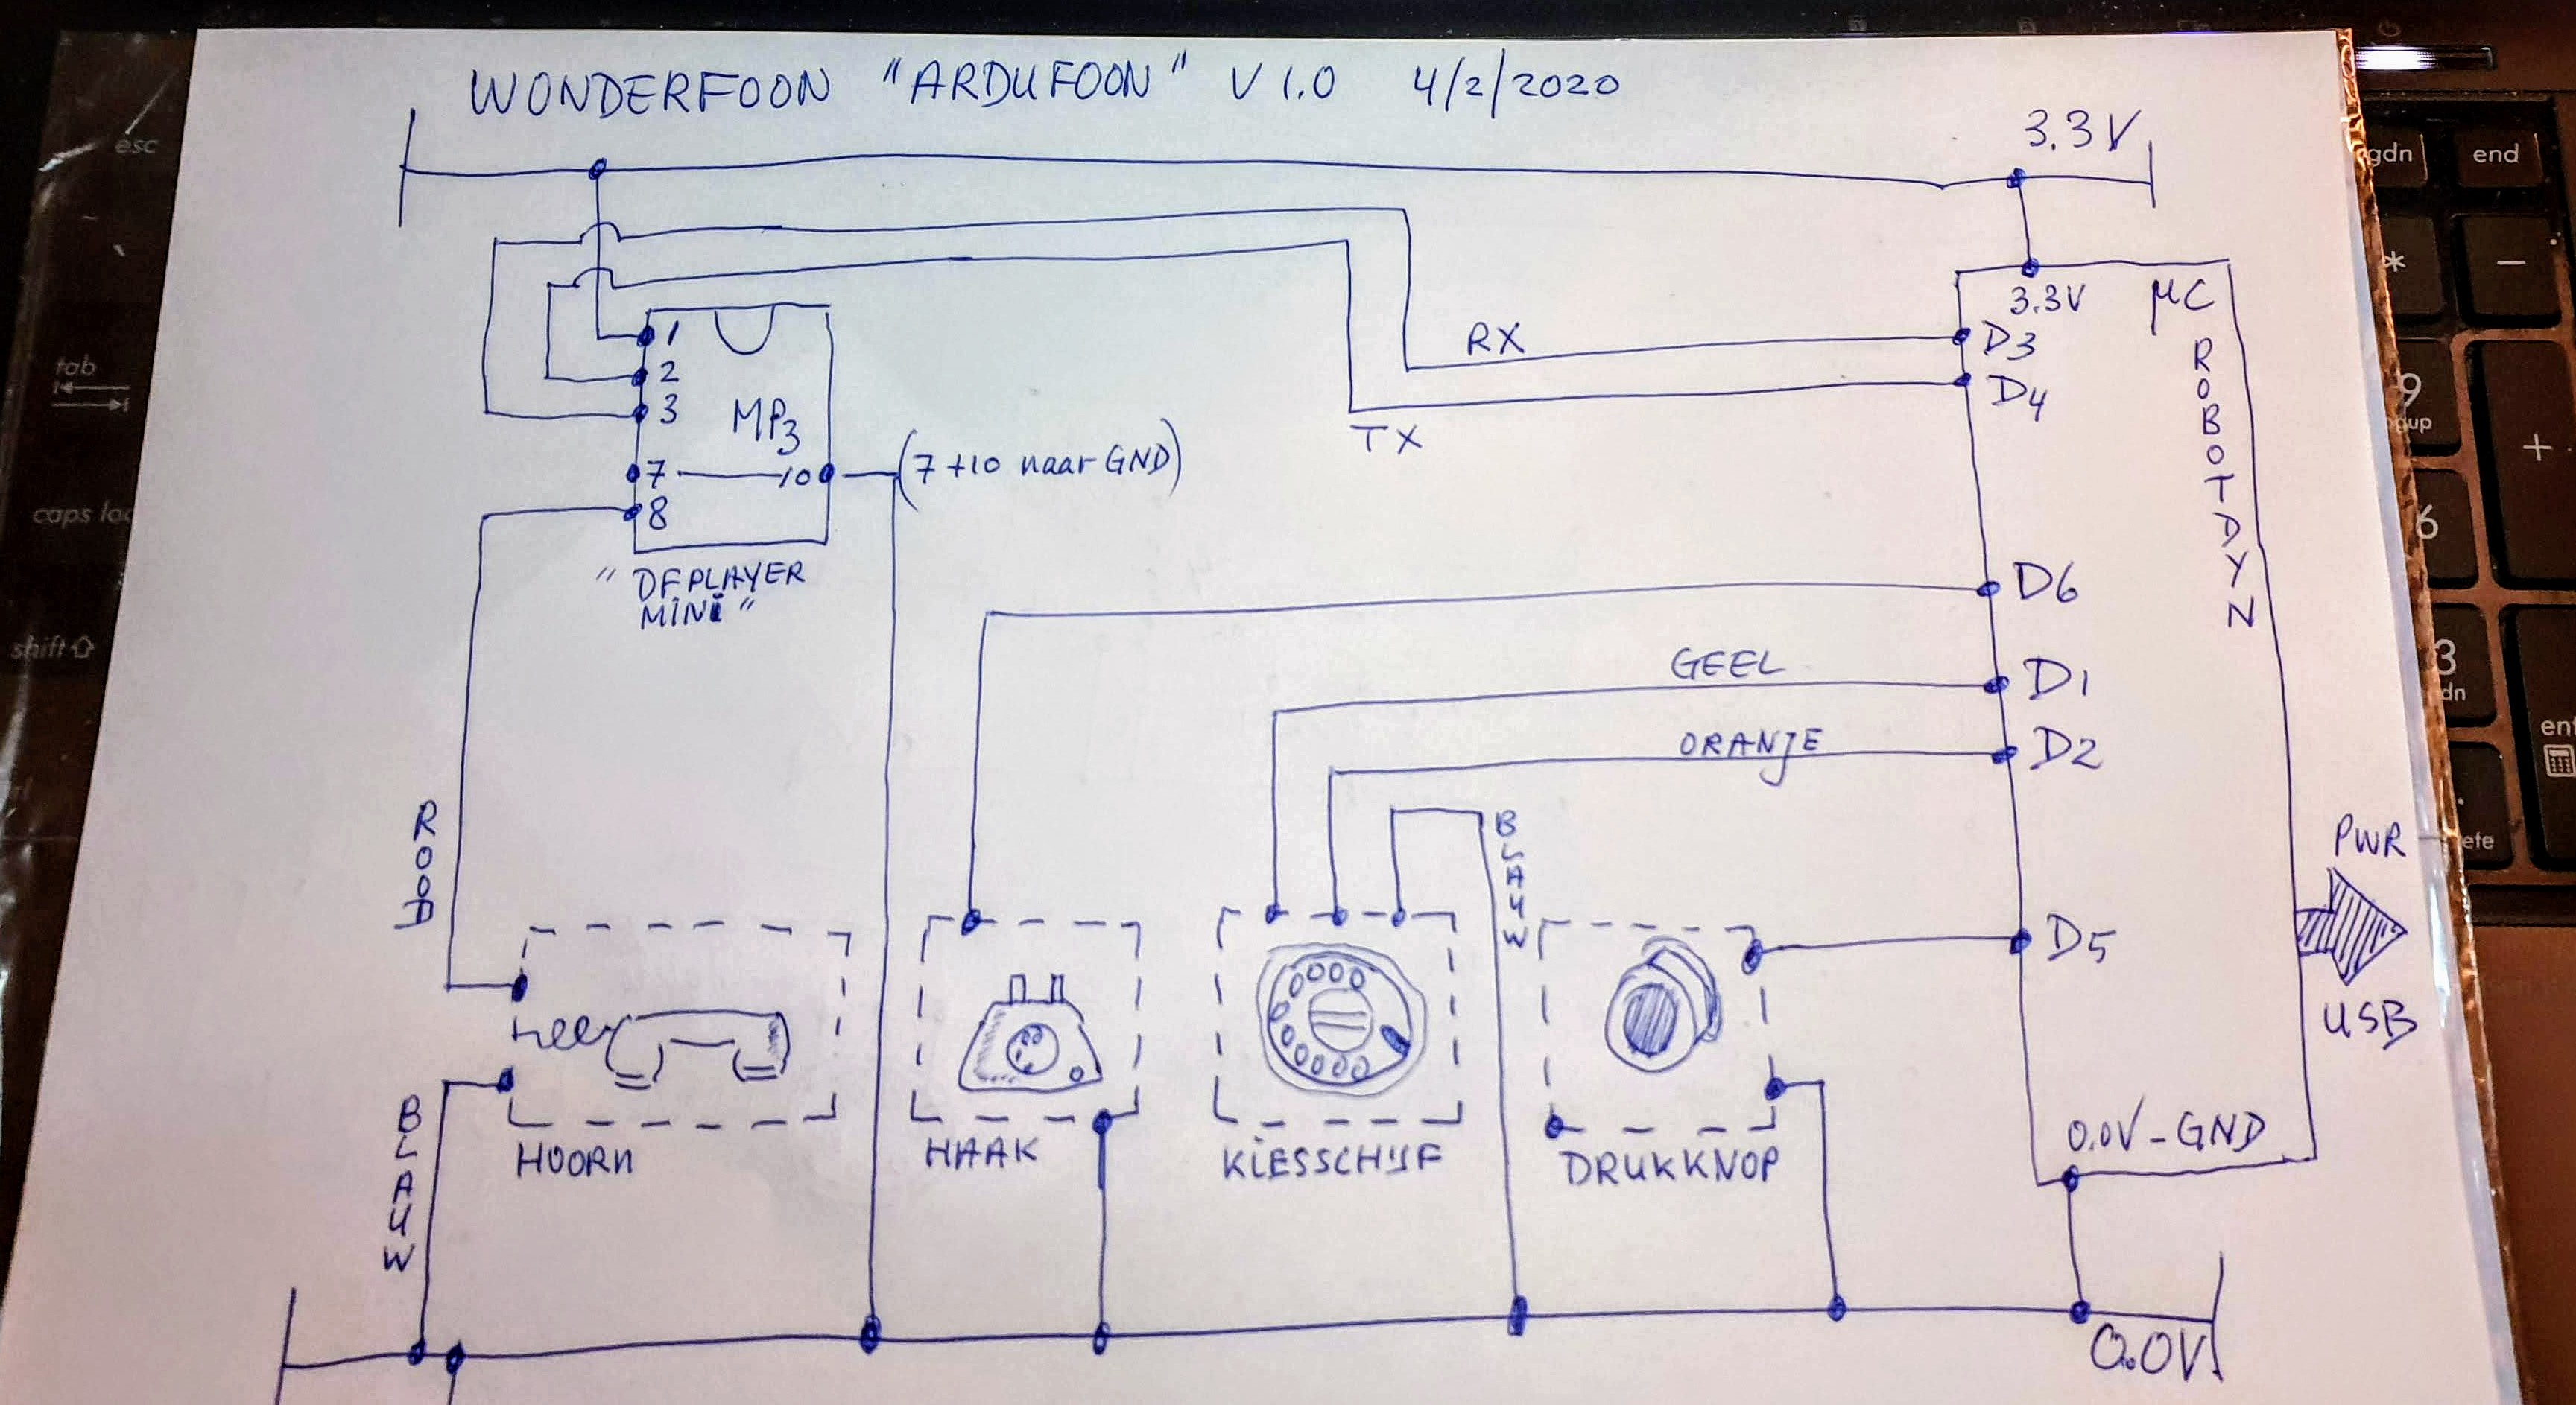 WONDERFOON "ARDUFOON" V 1.0 4/2/2020
3.3V
3.3V
µC
ROBOTDYN
RX
D3
D4
TX
1
2
3
MP3
7
10
(7+10 naar GND)
8
"DFPLAYER
MINI"
D6
GEEL
D1
ORANJE
D2
BLAUW
ROOD
D5
PWR
USB
BLAUW
HOORN
HAAK
KIESSCHIJF
DRUKKNOP
0.0V-GND
0.0V
esc
tab
caps loc
shift
gdn
end
*
-
9
gup
+
6
3
dn
ent
.
ete